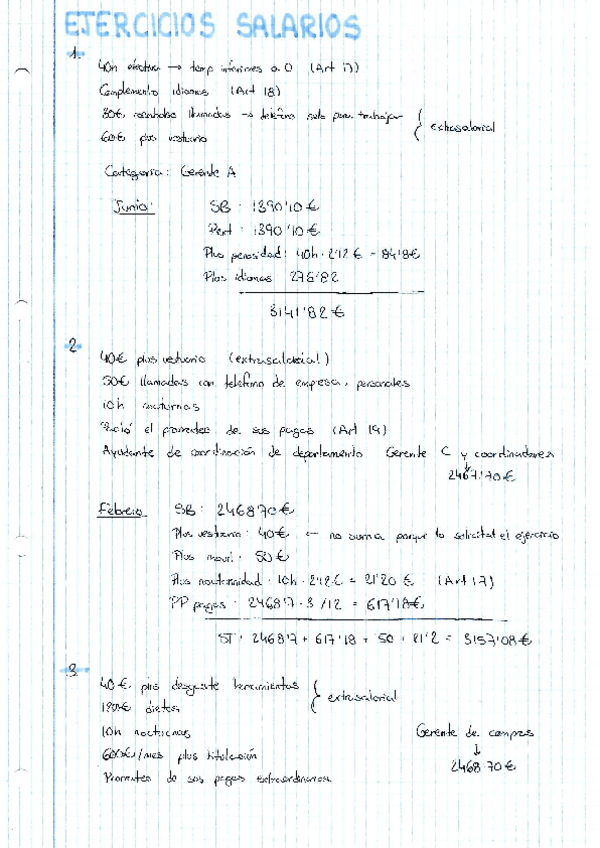 EJERCICIOS SALARIOS
1.
40h efectivas → temp inferiores a 0 (Art 17)
Complemento idiomas (Art 18)
80€ llamadas → teléfono solo para trabajar
60€ plus vestuario
extrasalarial
Categoría: Gerente A
Junio: SB: 1390'10€
: 1390'10€
Plus penosidad: 40h · 2'12€ = 84'8€
Plus idiomas 276'82
3141'82€
2
40€ plus vestuario (extrasalarial)
50€ llamadas con teléfono de empresa, personales
10h nocturnas
el prorrateo de sus pagas (Art 19)
Ayudante de coordinación de departamento Gerente C y coordinadores
Febrero SB: 246870€
Plus vestuario: 40€ ← no suma porque lo salarial el ejercicio
Plus movil: 50€
Plus nocturnidad: 10h · 2'12€ = 21'20€ (Art 17)
PP pagas: 2468'7 · 3 /12 = 617'18€
ST: 2468'7 + 617'18 + 50 + 21'2 = 3157'08€
3
40€ plus desgaste herramientas
dietas
extrasalarial
10h nocturnas
Gerente de compras
600€/mes plus titulación
2468.70€
Prorrateo de sus pagas extraordinarias